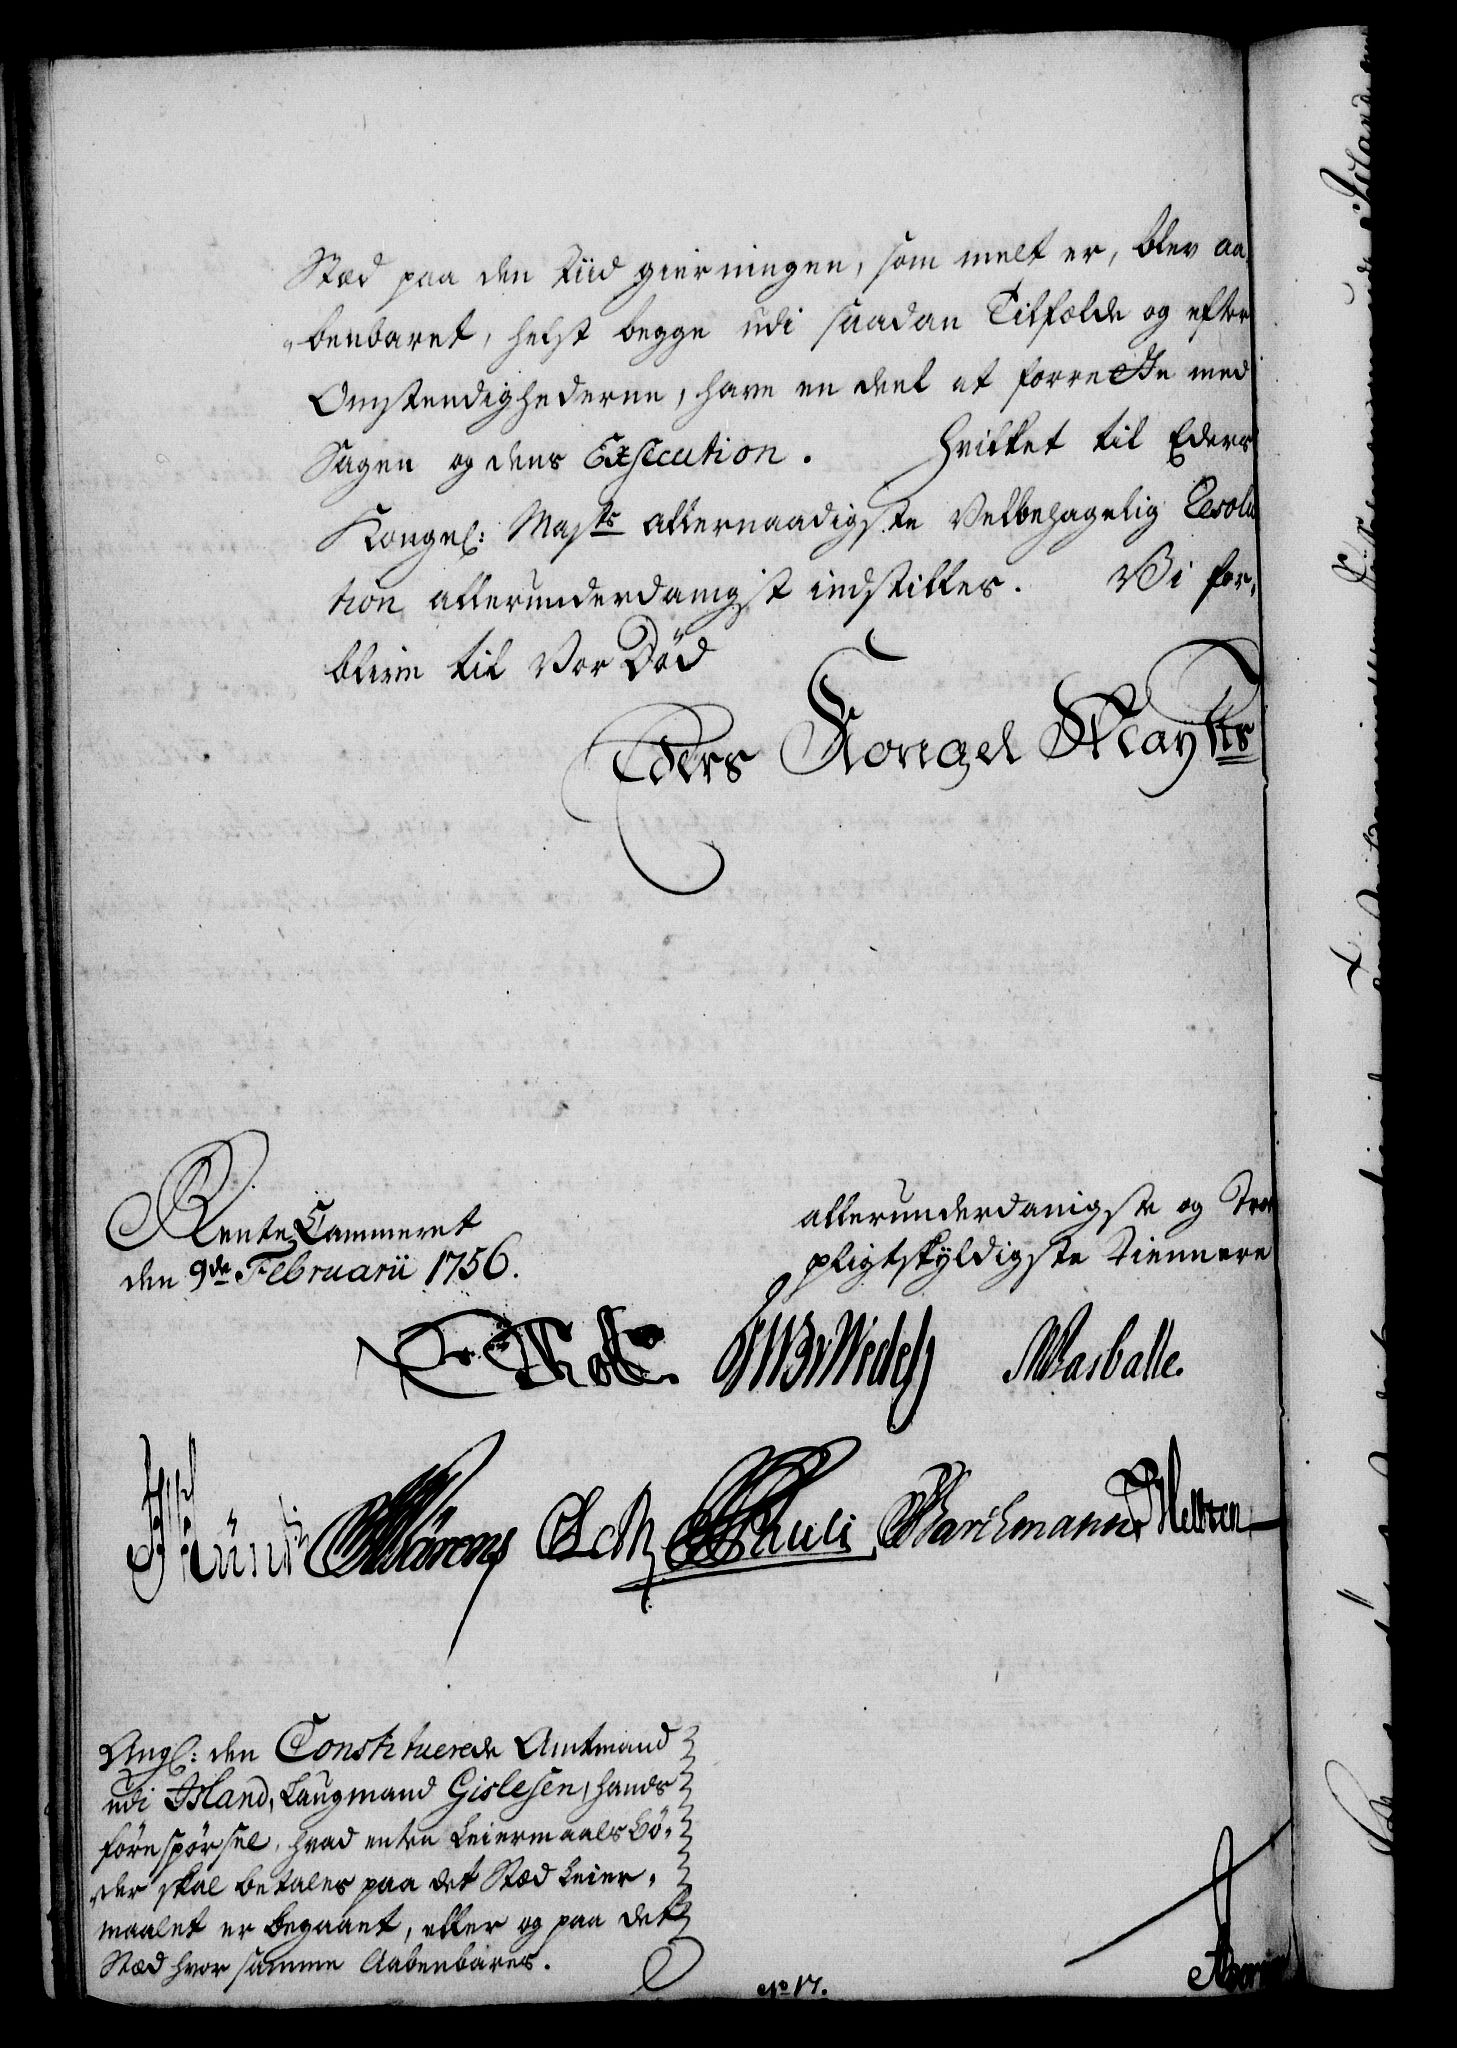 Stæd paa den Tiid gierningen, som melt er, blev aa-
benbaret, helst begge udi saadan Tilfælde og efter
Omstendighederne, have en deel at forrette med
Sagen og dens Execution. Hvilket til Eders
Kongel: Maÿts allernaadigste Velbehagelig Resolu
tion allerunderdanigst indstilles. Vi for-
blive til Vor Død
Eders Kongel Mayts
Rente Cammeret
den 9de Februarii 1756.
allerunderdanigste og Troe
pligtskyldigste Tiennere
Wedel Wasballe.
Schuli Barchmann
Angl: den Constituerede Amtmand
udi Island, Laugmand Gislesen, hands
forespørsel, hvad enten Leiermaals Bø-
der skal betales paa det Stæd Leier-
maalet er begaaet, eller og paa det
Stæd hvor samme Aabenbares.
No 17.